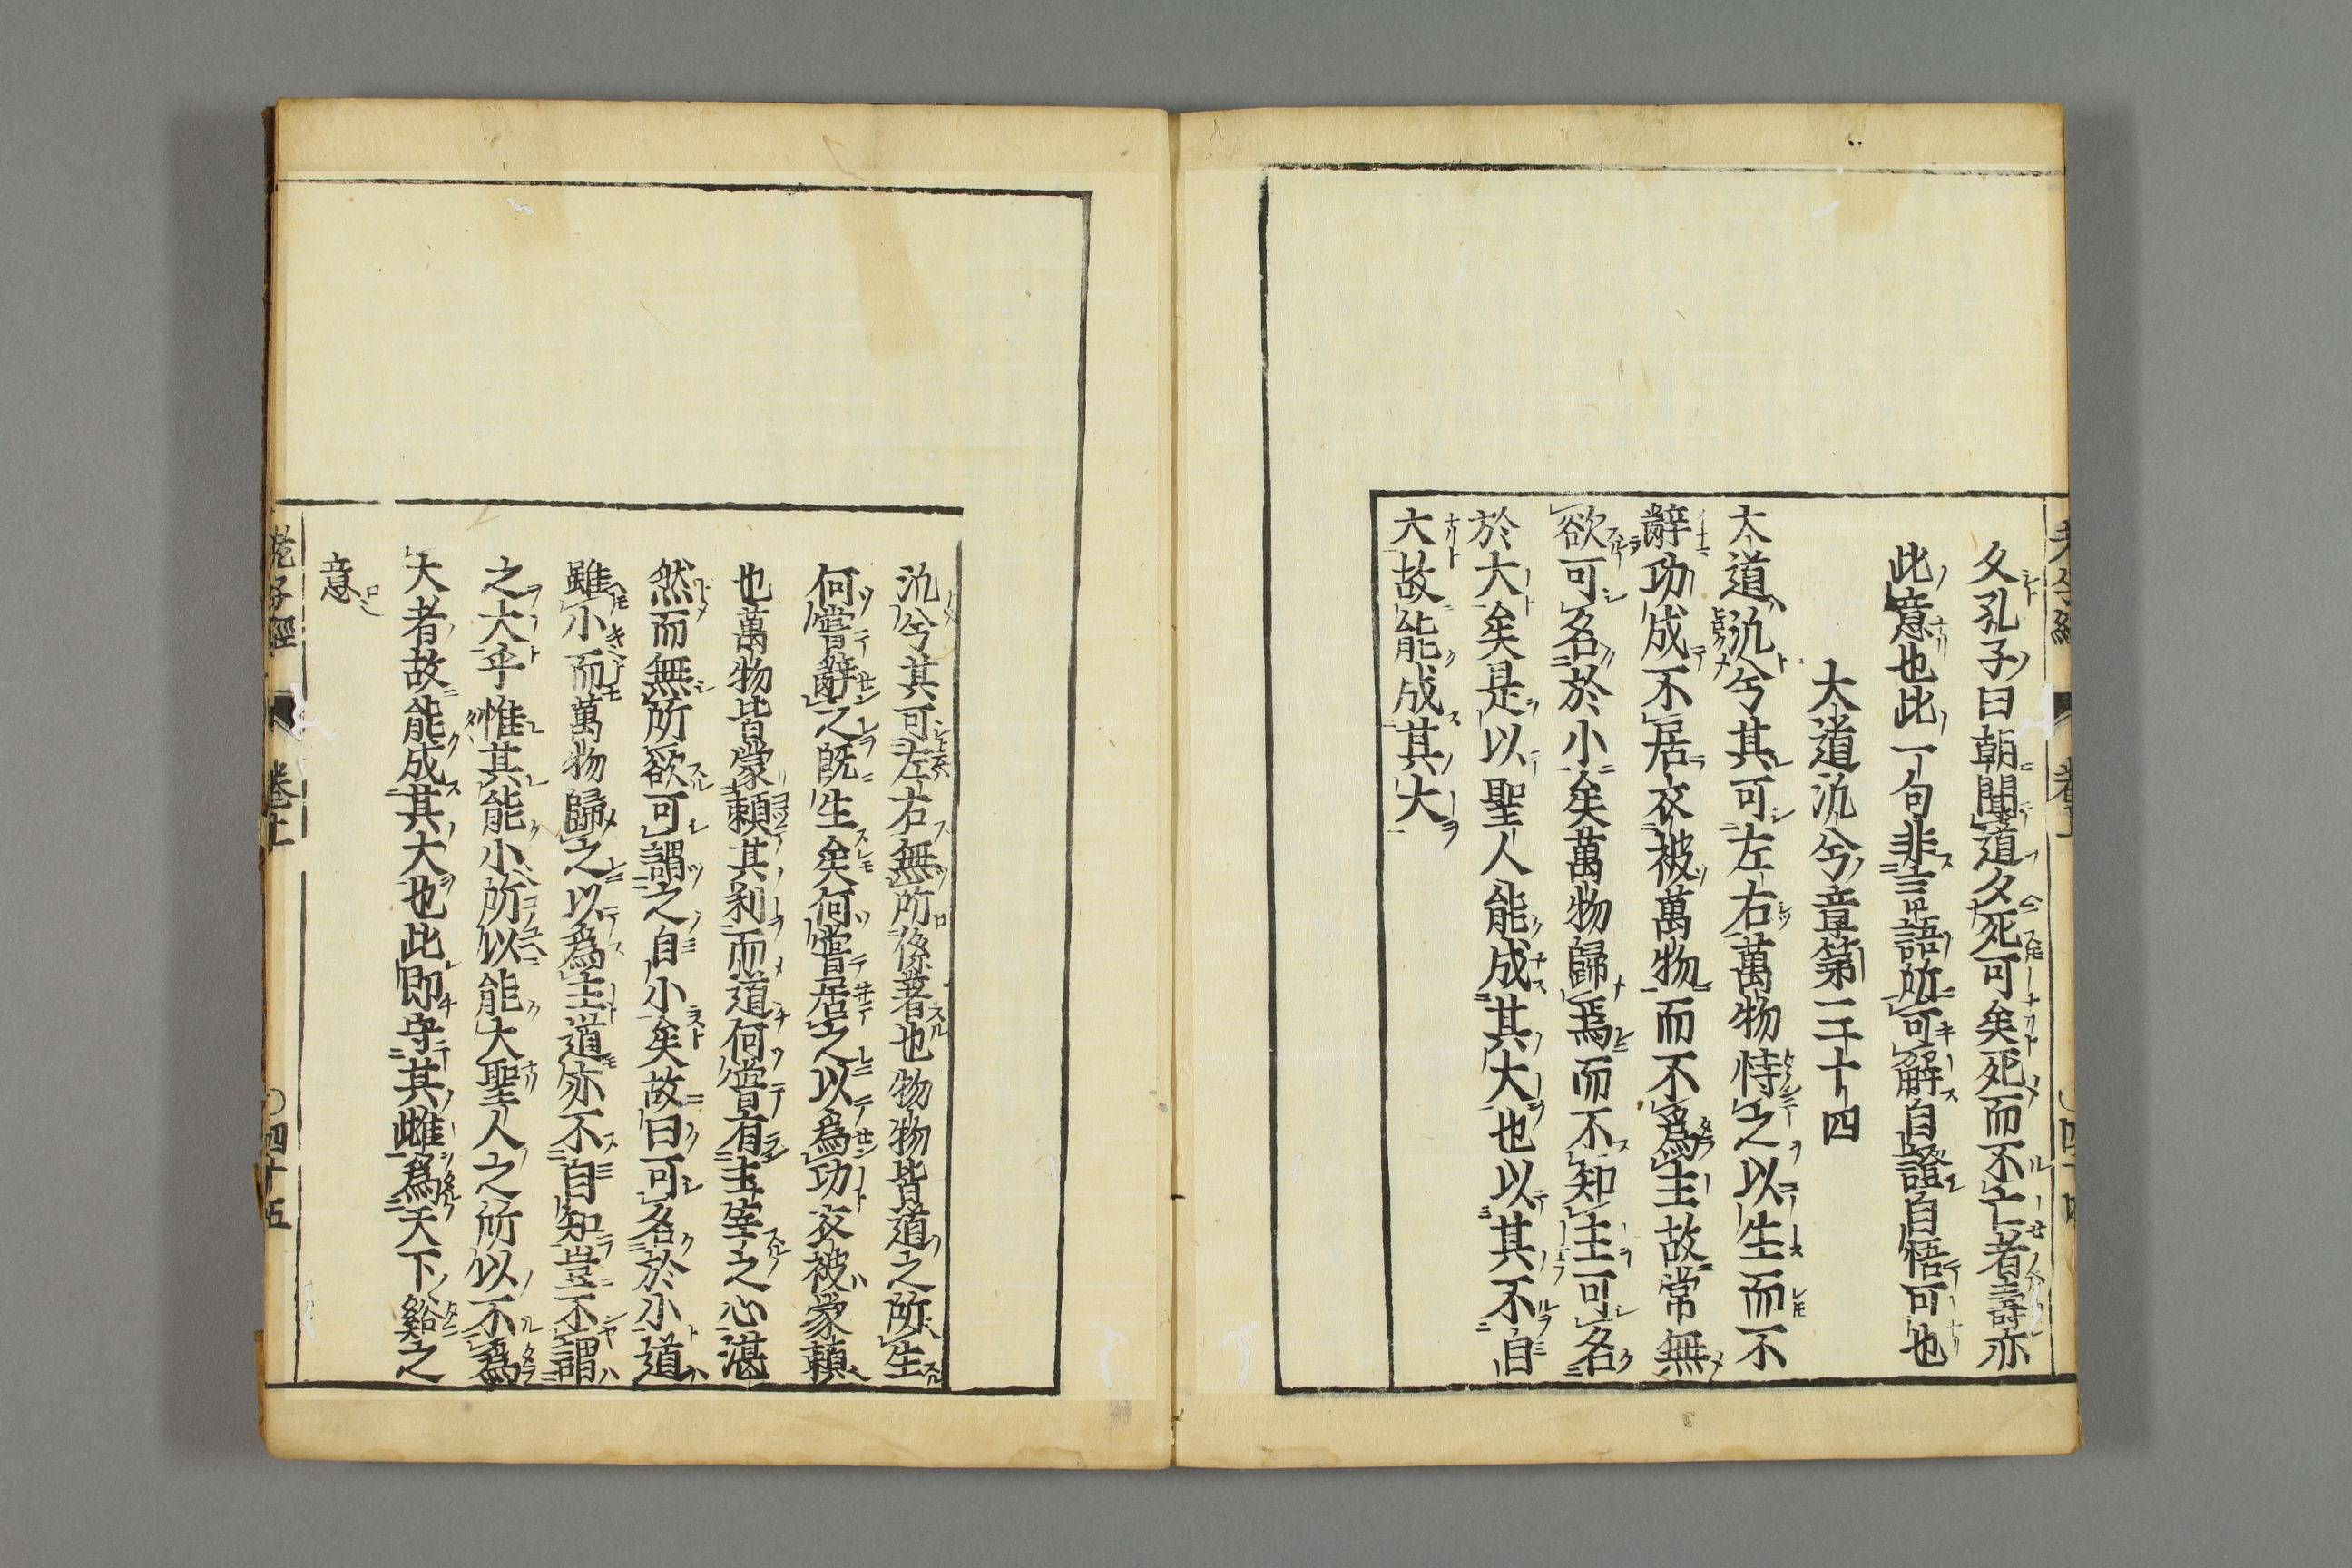 久孔子曰朝聞道夕死可矣死而不亡者壽亦
此意也此一句非言語所可解自證自悟可也
大道汎兮章第三十四
大道汎兮其可左右萬物恃之以生而不
辭功成不居衣被萬物而不爲主故常無
欲可名於小矣萬物歸焉而不知主可名
於大矣是以聖人能成其大也以其不自
大故能成其大
汎兮其可左右無所係著也物物皆道之所生
何嘗辭之既生矣何嘗居之以爲功衣被蒙賴
也萬物皆蒙賴其利而道何嘗有主宰之心湛
然而無所欲可謂之自小矣故曰可名於小道
雖小而萬物歸之以爲主道亦不自知豈不謂
之大乎惟其能小所以能大聖人之所以不爲
大者故能成其大也此即守其雌爲天下谿之
意
老子經 卷上 ○四十五